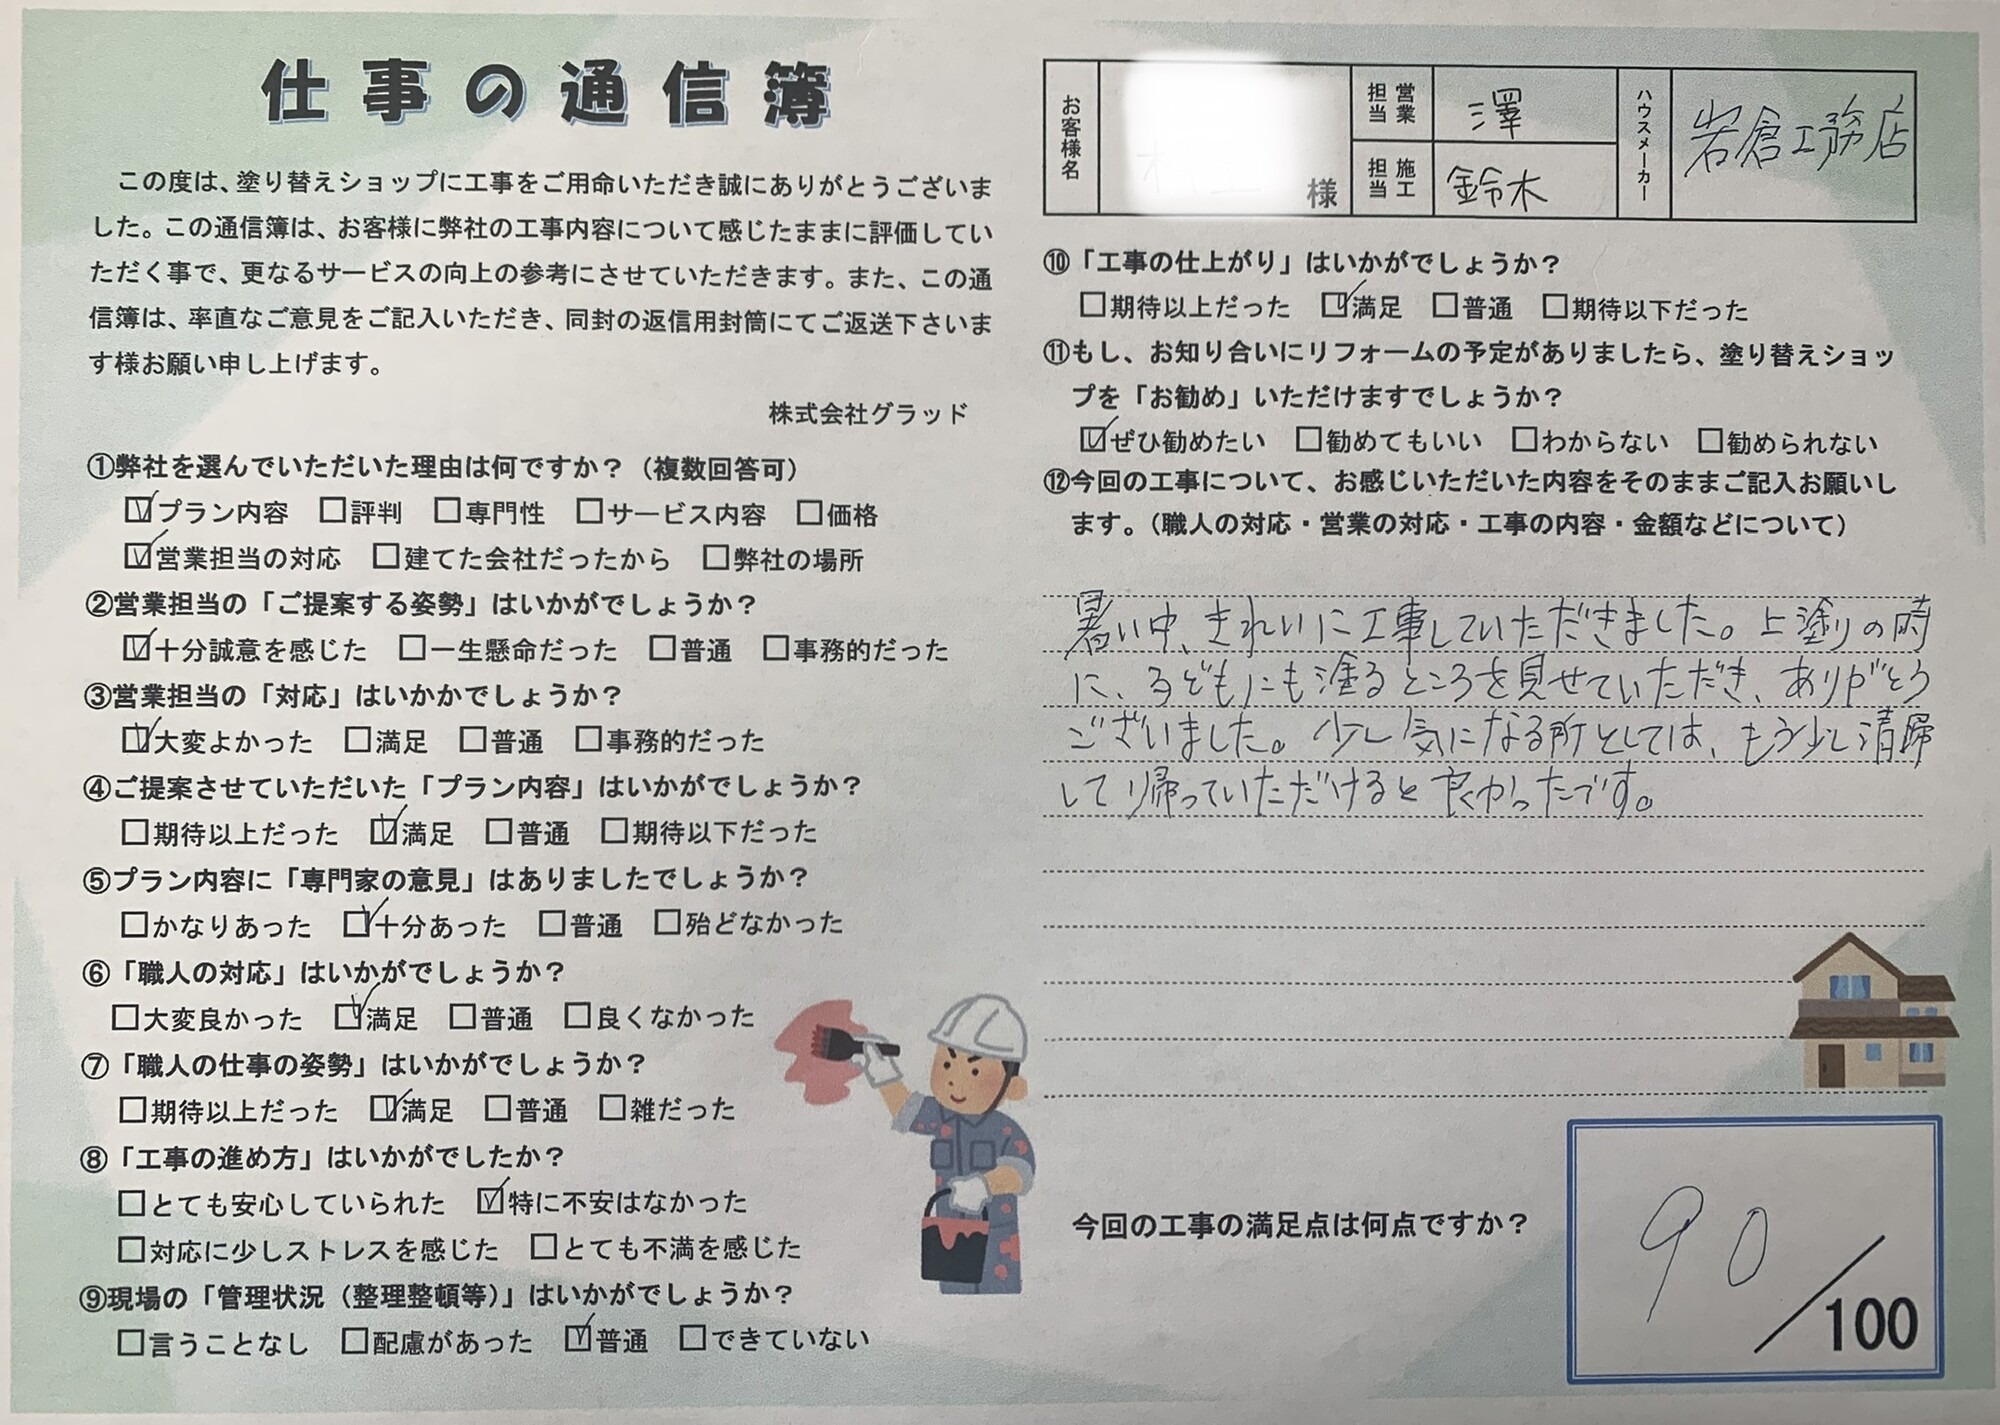 仕事の通信簿
この度は、塗り替えショップに工事をご用命いただき誠にありがとうございま
した。この通信簿は、お客様に弊社の工事内容について感じたままに評価してい
ただく事で、更なるサービスの向上の参考にさせていただきます。また、この通
信簿は、率直なご意見をご記入いただき、同封の返信用封筒にてご返送下さいま
す様お願い申し上げます。
株式会社グラッド
①弊社を選んでいただいた理由は何ですか？（複数回答可）
☑プラン内容 □評判 □専門性 □サービス内容 □価格
☑営業担当の対応 □建てた会社だったから □弊社の場所
②営業担当の「ご提案する姿勢」はいかがでしょうか？
☑十分誠意を感じた □一生懸命だった □普通 □事務的だった
③営業担当の「対応」はいかかでしょうか？
☑大変よかった □満足 □普通 □事務的だった
④ご提案させていただいた「プラン内容」はいかがでしょうか？
□期待以上だった ☑満足 □普通 □期待以下だった
⑤プラン内容に「専門家の意見」はありましたでしょうか？
□かなりあった ☑十分あった □普通 □殆どなかった
⑥「職人の対応」はいかがでしょうか？
□大変良かった ☑満足 □普通 □良くなかった
⑦「職人の仕事の姿勢」はいかがでしょうか？
□期待以上だった ☑満足 □普通 □雑だった
⑧「工事の進め方」はいかがでしたか？
□とても安心していられた ☑特に不安はなかった
□対応に少しストレスを感じた □とても不満を感じた
⑨現場の「管理状況（整理整頓等）」はいかがでしょうか？
□言うことなし □配慮があった ☑普通 □できていない
お客様名
様
営業担当
澤
施工担当
鈴木
ハウスメーカー
岩倉工務店
⑩「工事の仕上がり」はいかがでしょうか？
□期待以上だった ☑満足 □普通 □期待以下だった
⑪もし、お知り合いにリフォームの予定がありましたら、塗り替えショッ
プを「お勧め」いただけますでしょうか？
☑ぜひ勧めたい □勧めてもいい □わからない □勧められない
⑫今回の工事について、お感じいただいた内容をそのままご記入お願いし
ます。（職人の対応・営業の対応・工事の内容・金額などについて）
暑い中、きれいに工事していただきました。上塗りの時
に、子どもにも塗るところを見せていただき、ありがとう
ございました。少し気になる所としては、もう少し清掃
して帰っていただけると良かったです。
今回の工事の満足点は何点ですか？
90/100